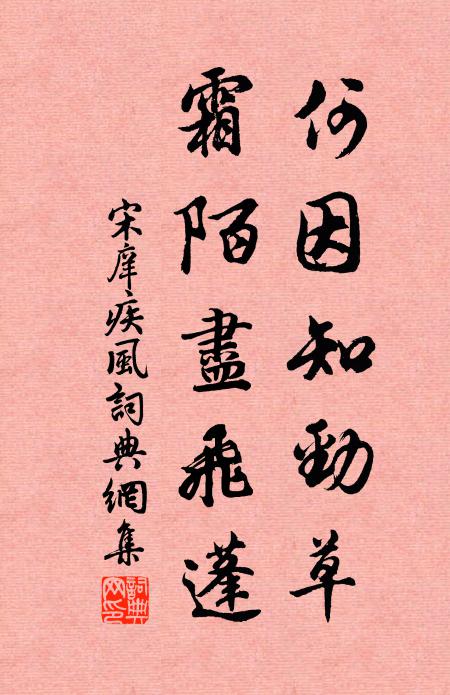 何因知勁草
霜陌盡飛蓬
宋庠疾風詞典網集
詞典網印